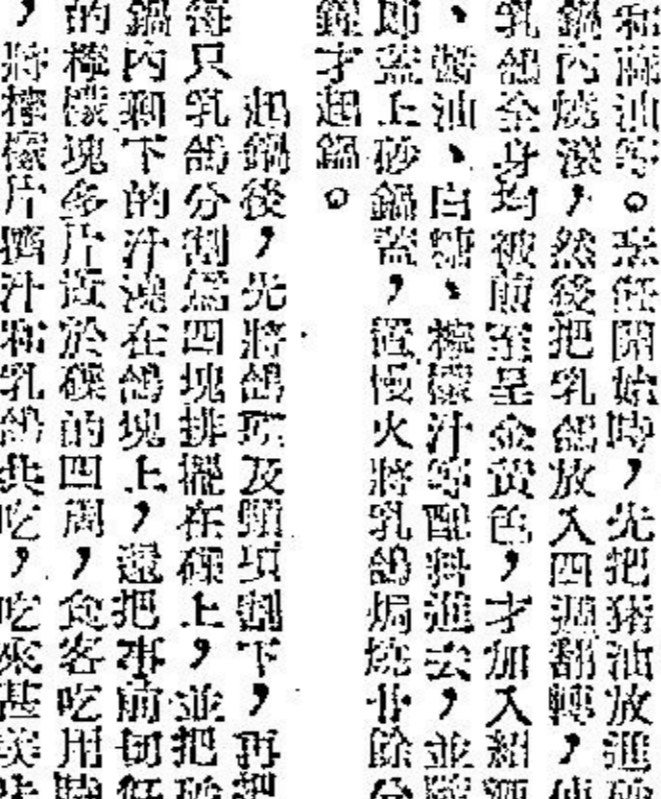 和麻油等。烹飪開始時，先把猪油放進砂
鍋內燒滾，然後把乳鴿放入四週翻轉，使
乳鴿全身均被煎至呈金黃色，才加入紹酒
、蠔油、白糖、檸檬汁等配料進去，並
即蓋上砂鍋蓋，置慢火將乳鴿焗燒廿餘分
鐘才起鍋。
起鍋後，先將鴿頭及頸項割下，再把
每只乳鴿分割爲四塊排擺在碟上，並把砂
鍋內剩下的汁澆在鴿塊上，還把事前切好
的檸檬塊多片放於碟的四周，食客吃用時
，將檸檬片擠汁和乳鴿共吃，吃來甚美